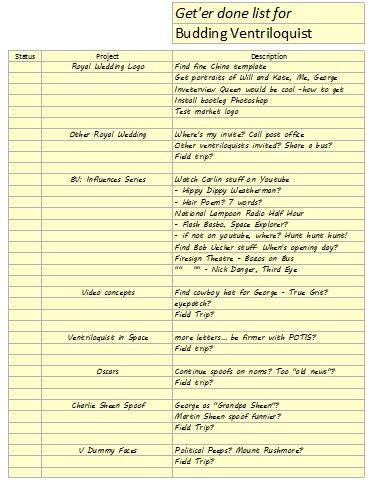 Get'er done list for
Budding Ventriloquist
Status Project Description
Royal Wedding Logo Find fine China template
Get portraits of Will and Kate, Me, George
Inveterview Queen would be cool -how to get
Install bootleg Photoshop
Test market logo
Other Royal Wedding Where's my invite? Call post office
Other ventriloquists invited? Share a bus?
Field trip?
BV: Influences Series Watch Carlin stuff on Youtube
- Hippy Dippy Weatherman?
- Hair Poem? 7 words?
National Lampoon Radio Half Hour
- Flash Basbo, Space Explorer?
- if not on youtube, where? Hunt hunt hunt!
Find Bob Uecker stuff When's opening day?
Firesign Theatre - Bozos on Bus
"" "" - Nick Danger, Third Eye
Video concepts Find cowboy hat for George - True Grit?
eyepatch?
Field Trip?
Ventriloquist in Space more letters... be firmer with POTIS?
Field trip?
Oscars Continue spoofs on noms? Too "old news"?
Field trip?
Charlie Sheen Spoof George as "Grandpa Sheen"?
Martin Sheen spoof funnier?
Field Trip?
V Dummy Faces Political Peeps? Mount Rushmore?
Field Trip?